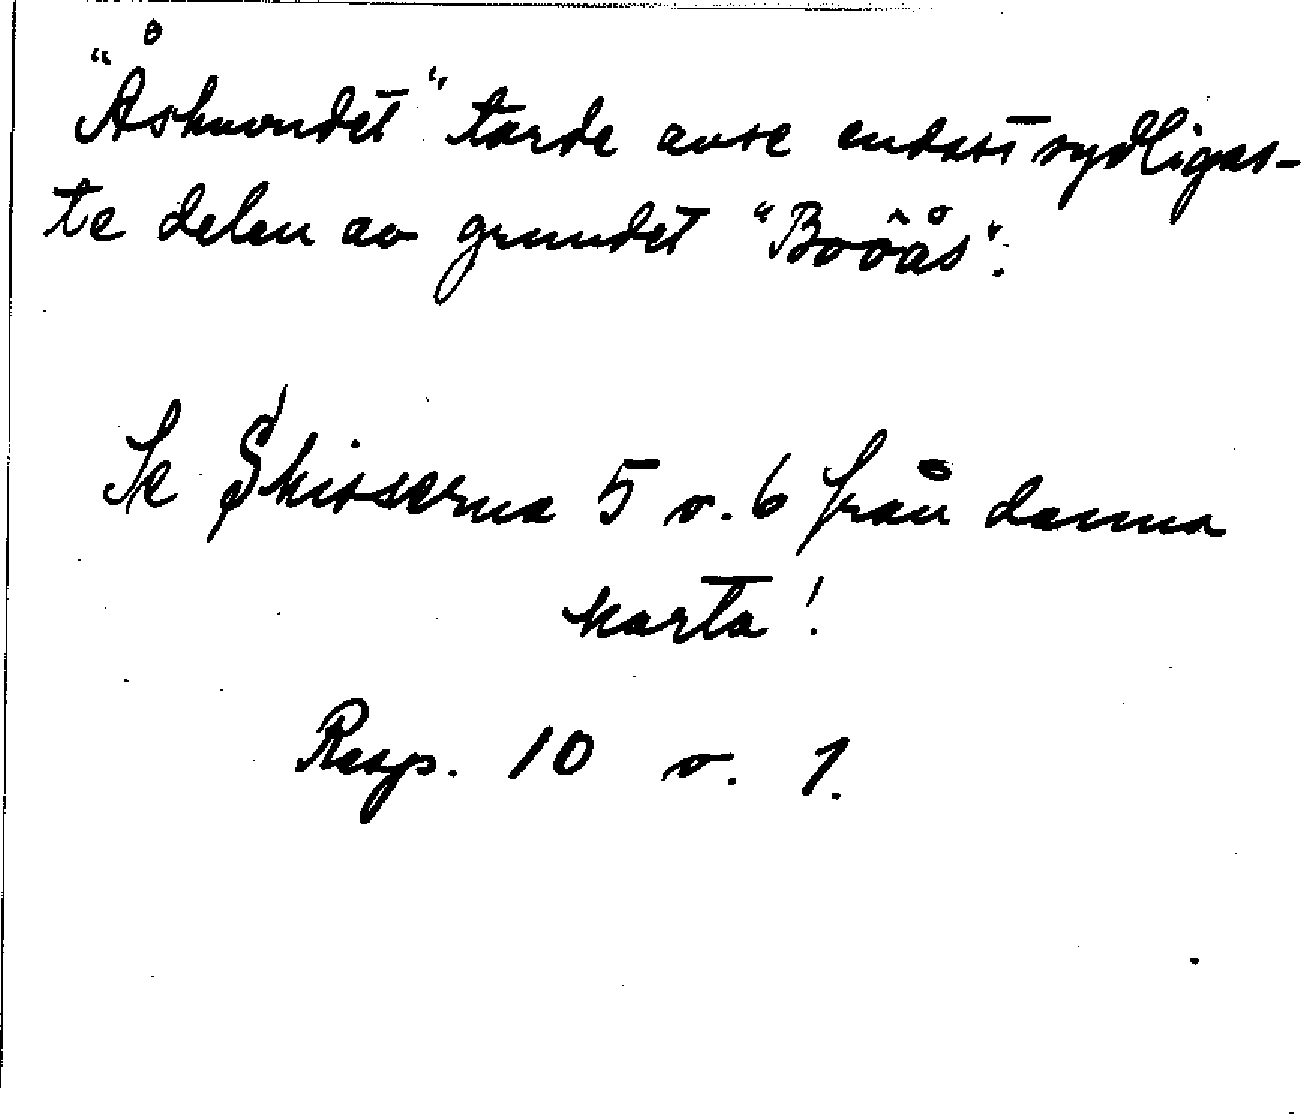 "Åskuvudet" torde avse endast sydligas-
te delen av grundet "Booås".
Se Skisserna 5 o. 6 från denna
karta!
Resp. 10 o. 1.